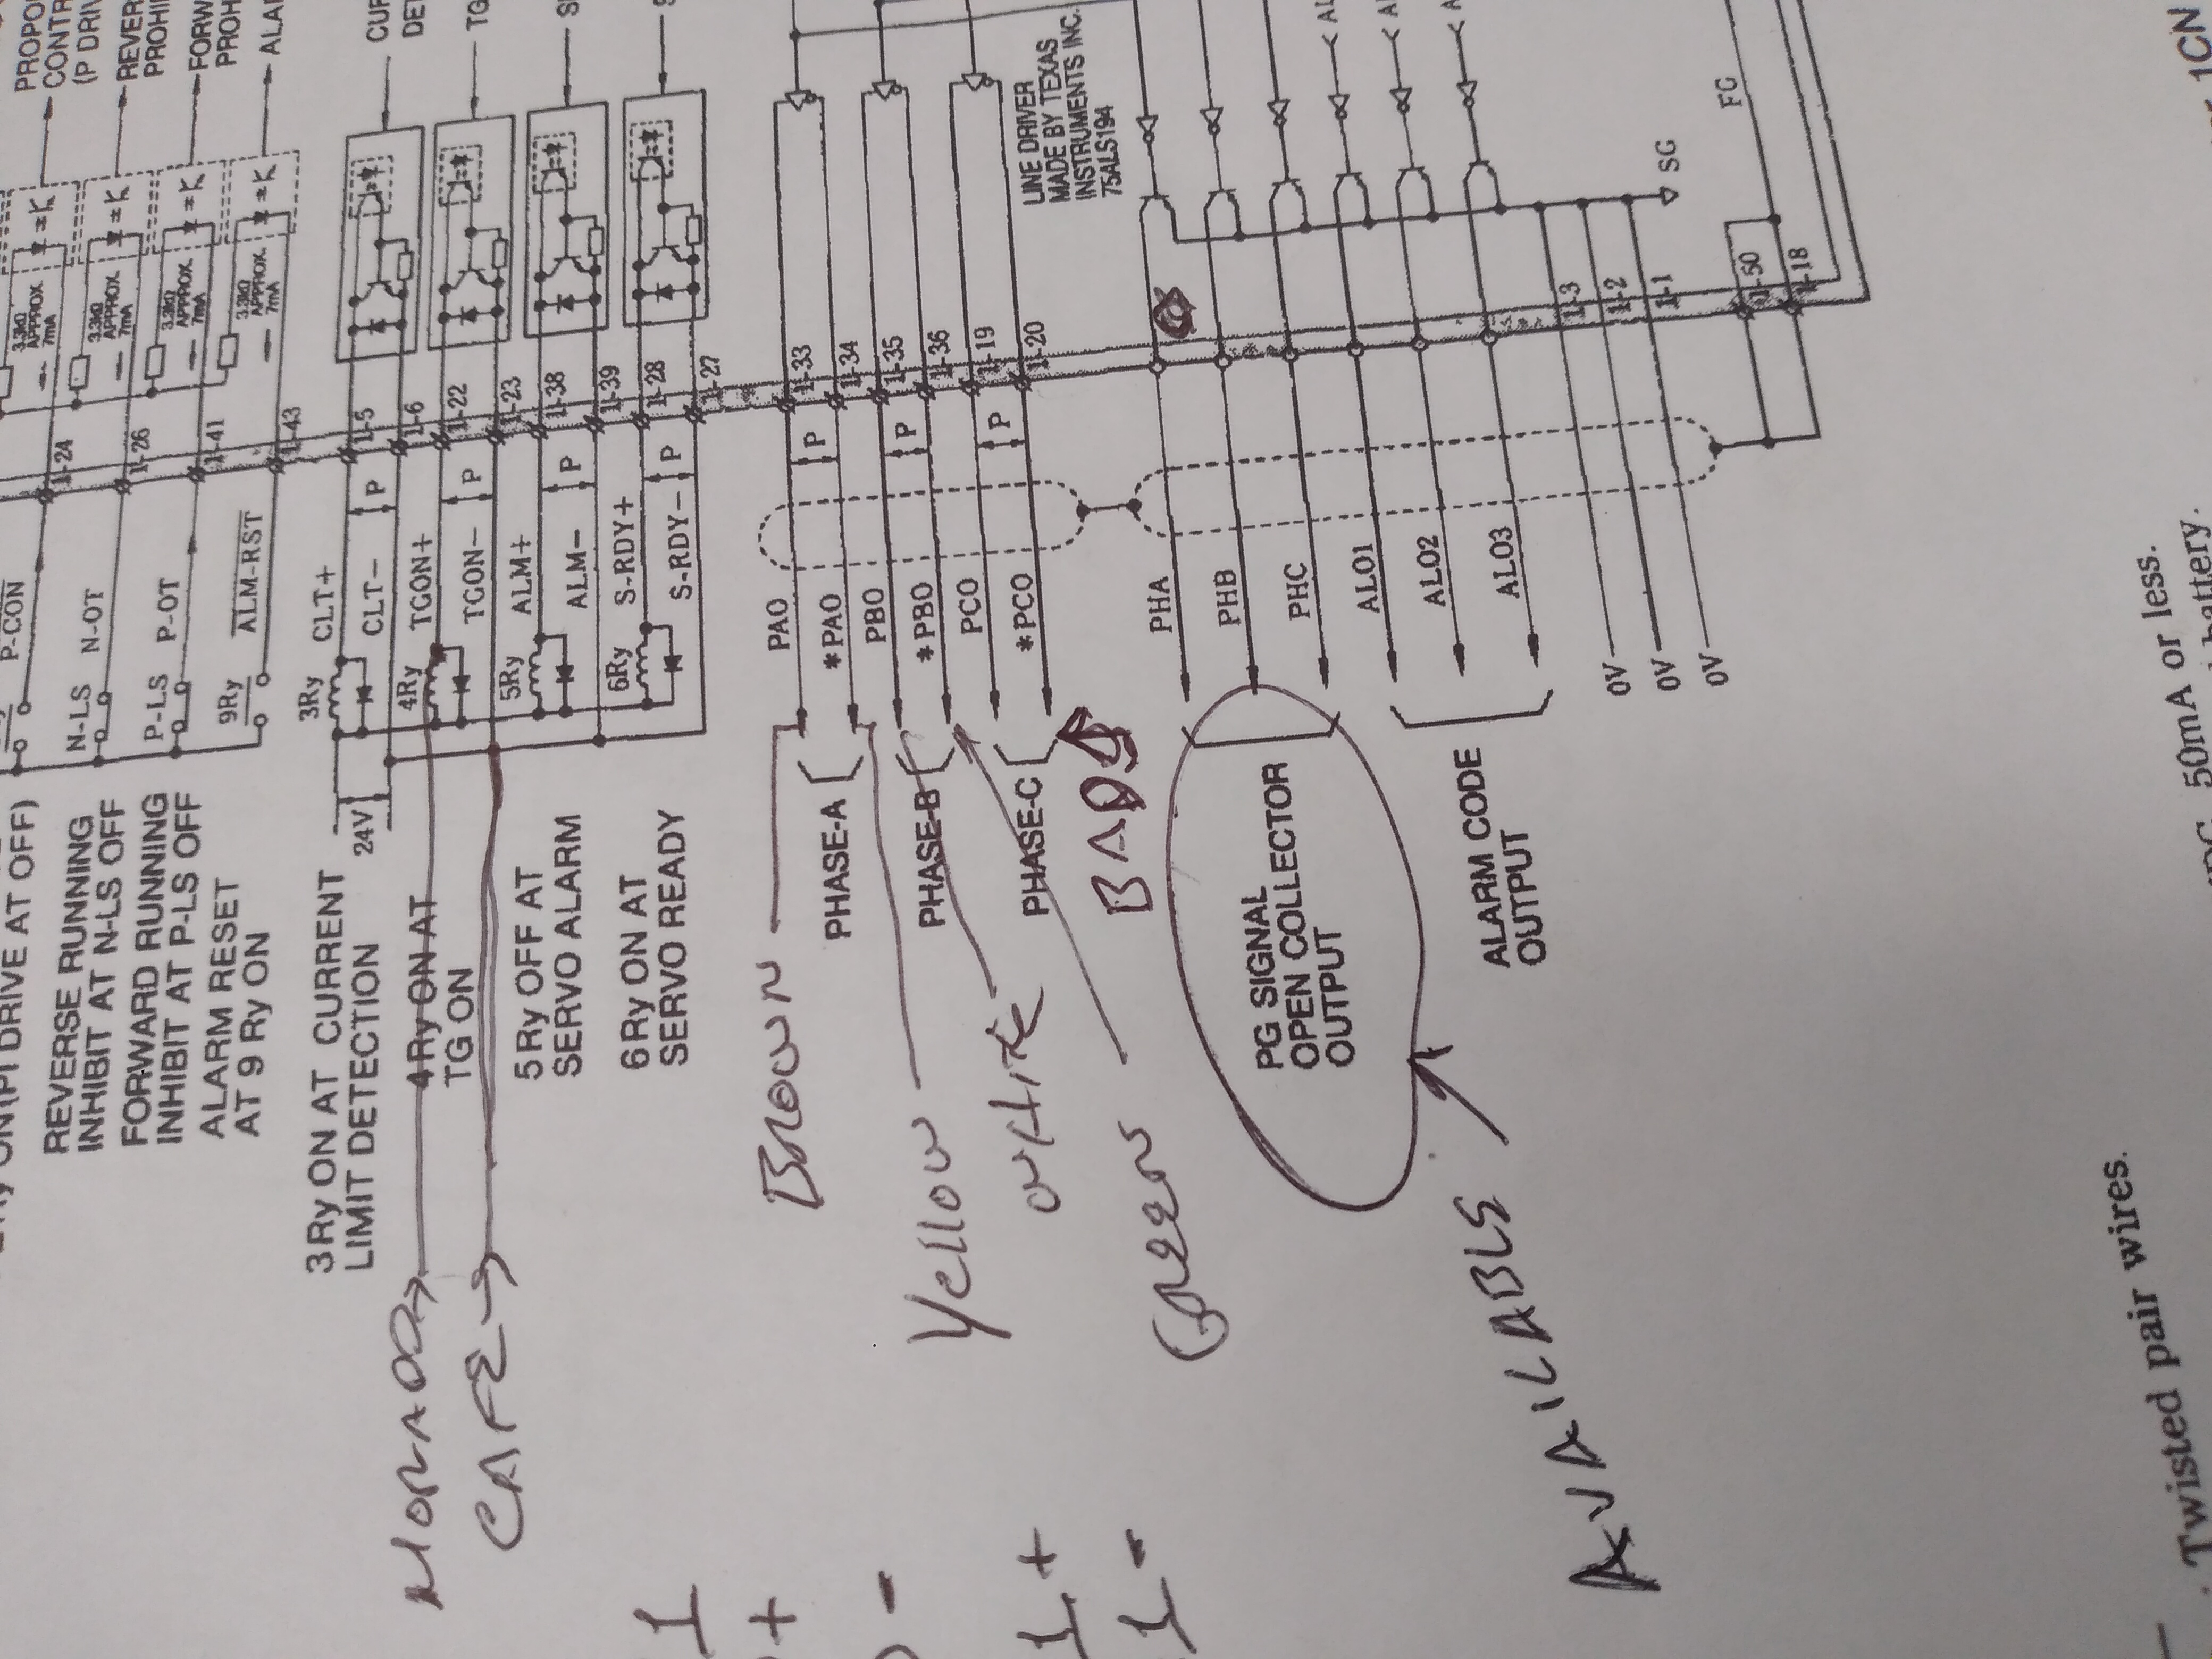 PROPO
CONTR
(P DRIV
REVER
PROHI
FORW
PROH
ALA
CUR
DET
TG
3.3kΩ
APPROX.
7mA
3.3kΩ
APPROX.
7mA
3.3kΩ
APPROX.
7mA
3.3kΩ
APPROX.
7mA
P-CON
1-24
N-LS
N-OT
1-26
P-LS
P-OT
1-41
9Ry
ALM-RST
1-43
DRIVE AT OFF)
REVERSE RUNNING
INHIBIT AT N-LS OFF
FORWARD RUNNING
INHIBIT AT P-LS OFF
ALARM RESET
AT 9 Ry ON
3Ry
CLT+
1-5
CLT−
P
1-6
24V
4Ry
TGON+
1-22
TGON−
P
1-23
5Ry
ALM+
1-38
ALM−
P
1-39
6Ry
S-RDY+
1-28
S-RDY−
P
1-27
3Ry ON AT CURRENT
LIMIT DETECTION
4Ry ON AT
TG ON
5Ry OFF AT
SERVO ALARM
6Ry ON AT
SERVO READY
CAFE
PHASE-A
PAO
P
1-33
*PAO
1-34
PHASE-B
PBO
P
1-35
*PBO
1-36
PHASE-C
PCO
P
1-19
*PCO
1-20
LINE DRIVER
MADE BY TEXAS
INSTRUMENTS INC.
75ALS194
Brown
Yellow
White
Green
BAD
PHA
PHB
PHC
PG SIGNAL
OPEN COLLECTOR
OUTPUT
AVAILABLE
ALO1
ALO2
ALO3
ALARM CODE
OUTPUT
0V
1-3
0V
1-2
0V
1-1
SG
1-50
1-18
FG
1
+
-
1+
1-
50mA or less.
battery.
Twisted pair wires.
1CN